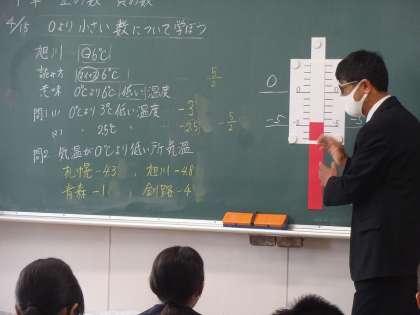 4/15 0より小さい数について学ぼう
旭川 ⊖6℃
読み方 マイナス6℃
意味 0℃より6℃低い温度
問1 (1) 0℃より3℃低い温度 -3
(2) 〃 2.5℃ 〃 -2.5, -5/2
5/2
問2 気温が0℃より低い所、気温
札幌 -4.3、旭川 -4.8
青森 -1、釧路 -4
0
-5
-5